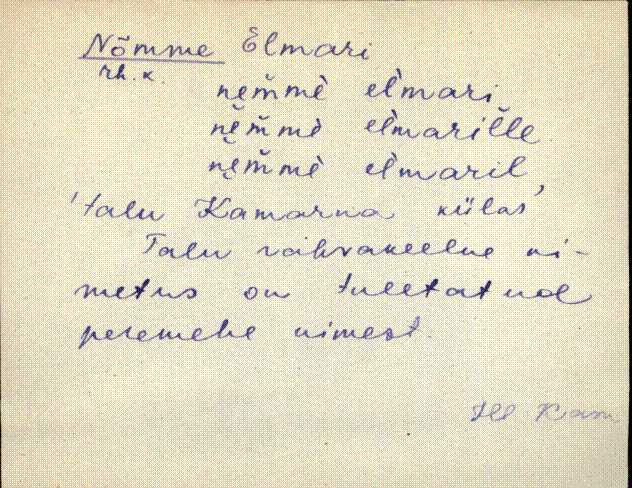 Nõmme Elmari
rh. k.
ne̮m̆mè el̀mari
ne̮m̆mè el̀marìlle
ne̮m̆mè el̀maril
'talu Kamarna külas'
Talu rahvakeelne ni-
metus on tuletatud
peremehe nimest.